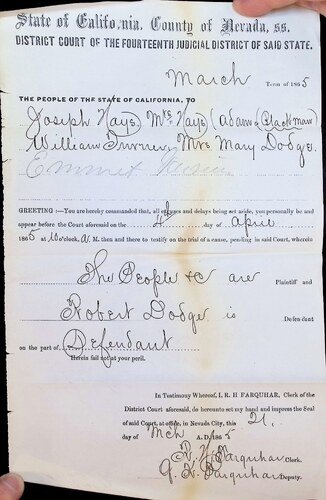 State of California, County of Nevada, ss.
DISTRICT COURT OF THE FOURTEENTH JUDICIAL DISTRICT OF SAID STATE.
March Term of 1865
THE PEOPLE OF THE STATE OF CALIFORNIA, TO
Joseph Hays, Mrs Hays (Adam (Blackman)
William Turney Mrs Mary Dodge.
Emmet
GREETING :—You are hereby commanded, that all excuses and delays being set aside, you personally be and
appear before the Court aforesaid on the 4th day of April
1865 at 10 o'clock, A. M. then and there to testify on the trial of a cause, pending in said Court, wherein
The People &c are Plaintiff and
Robert Dodge is Defendant
on the part of Defendant
Herein fail not at your peril.
In Testimony Whereof, I, R. H FARQUHAR, Clerk of the
District Court aforesaid, do hereunto set my hand and impress the Seal
of said Court, at office, in Nevada City, this 21.
day of Mch A. D. 1865
R. H. Farquhar Clerk.
G. K. Farquhar Deputy.